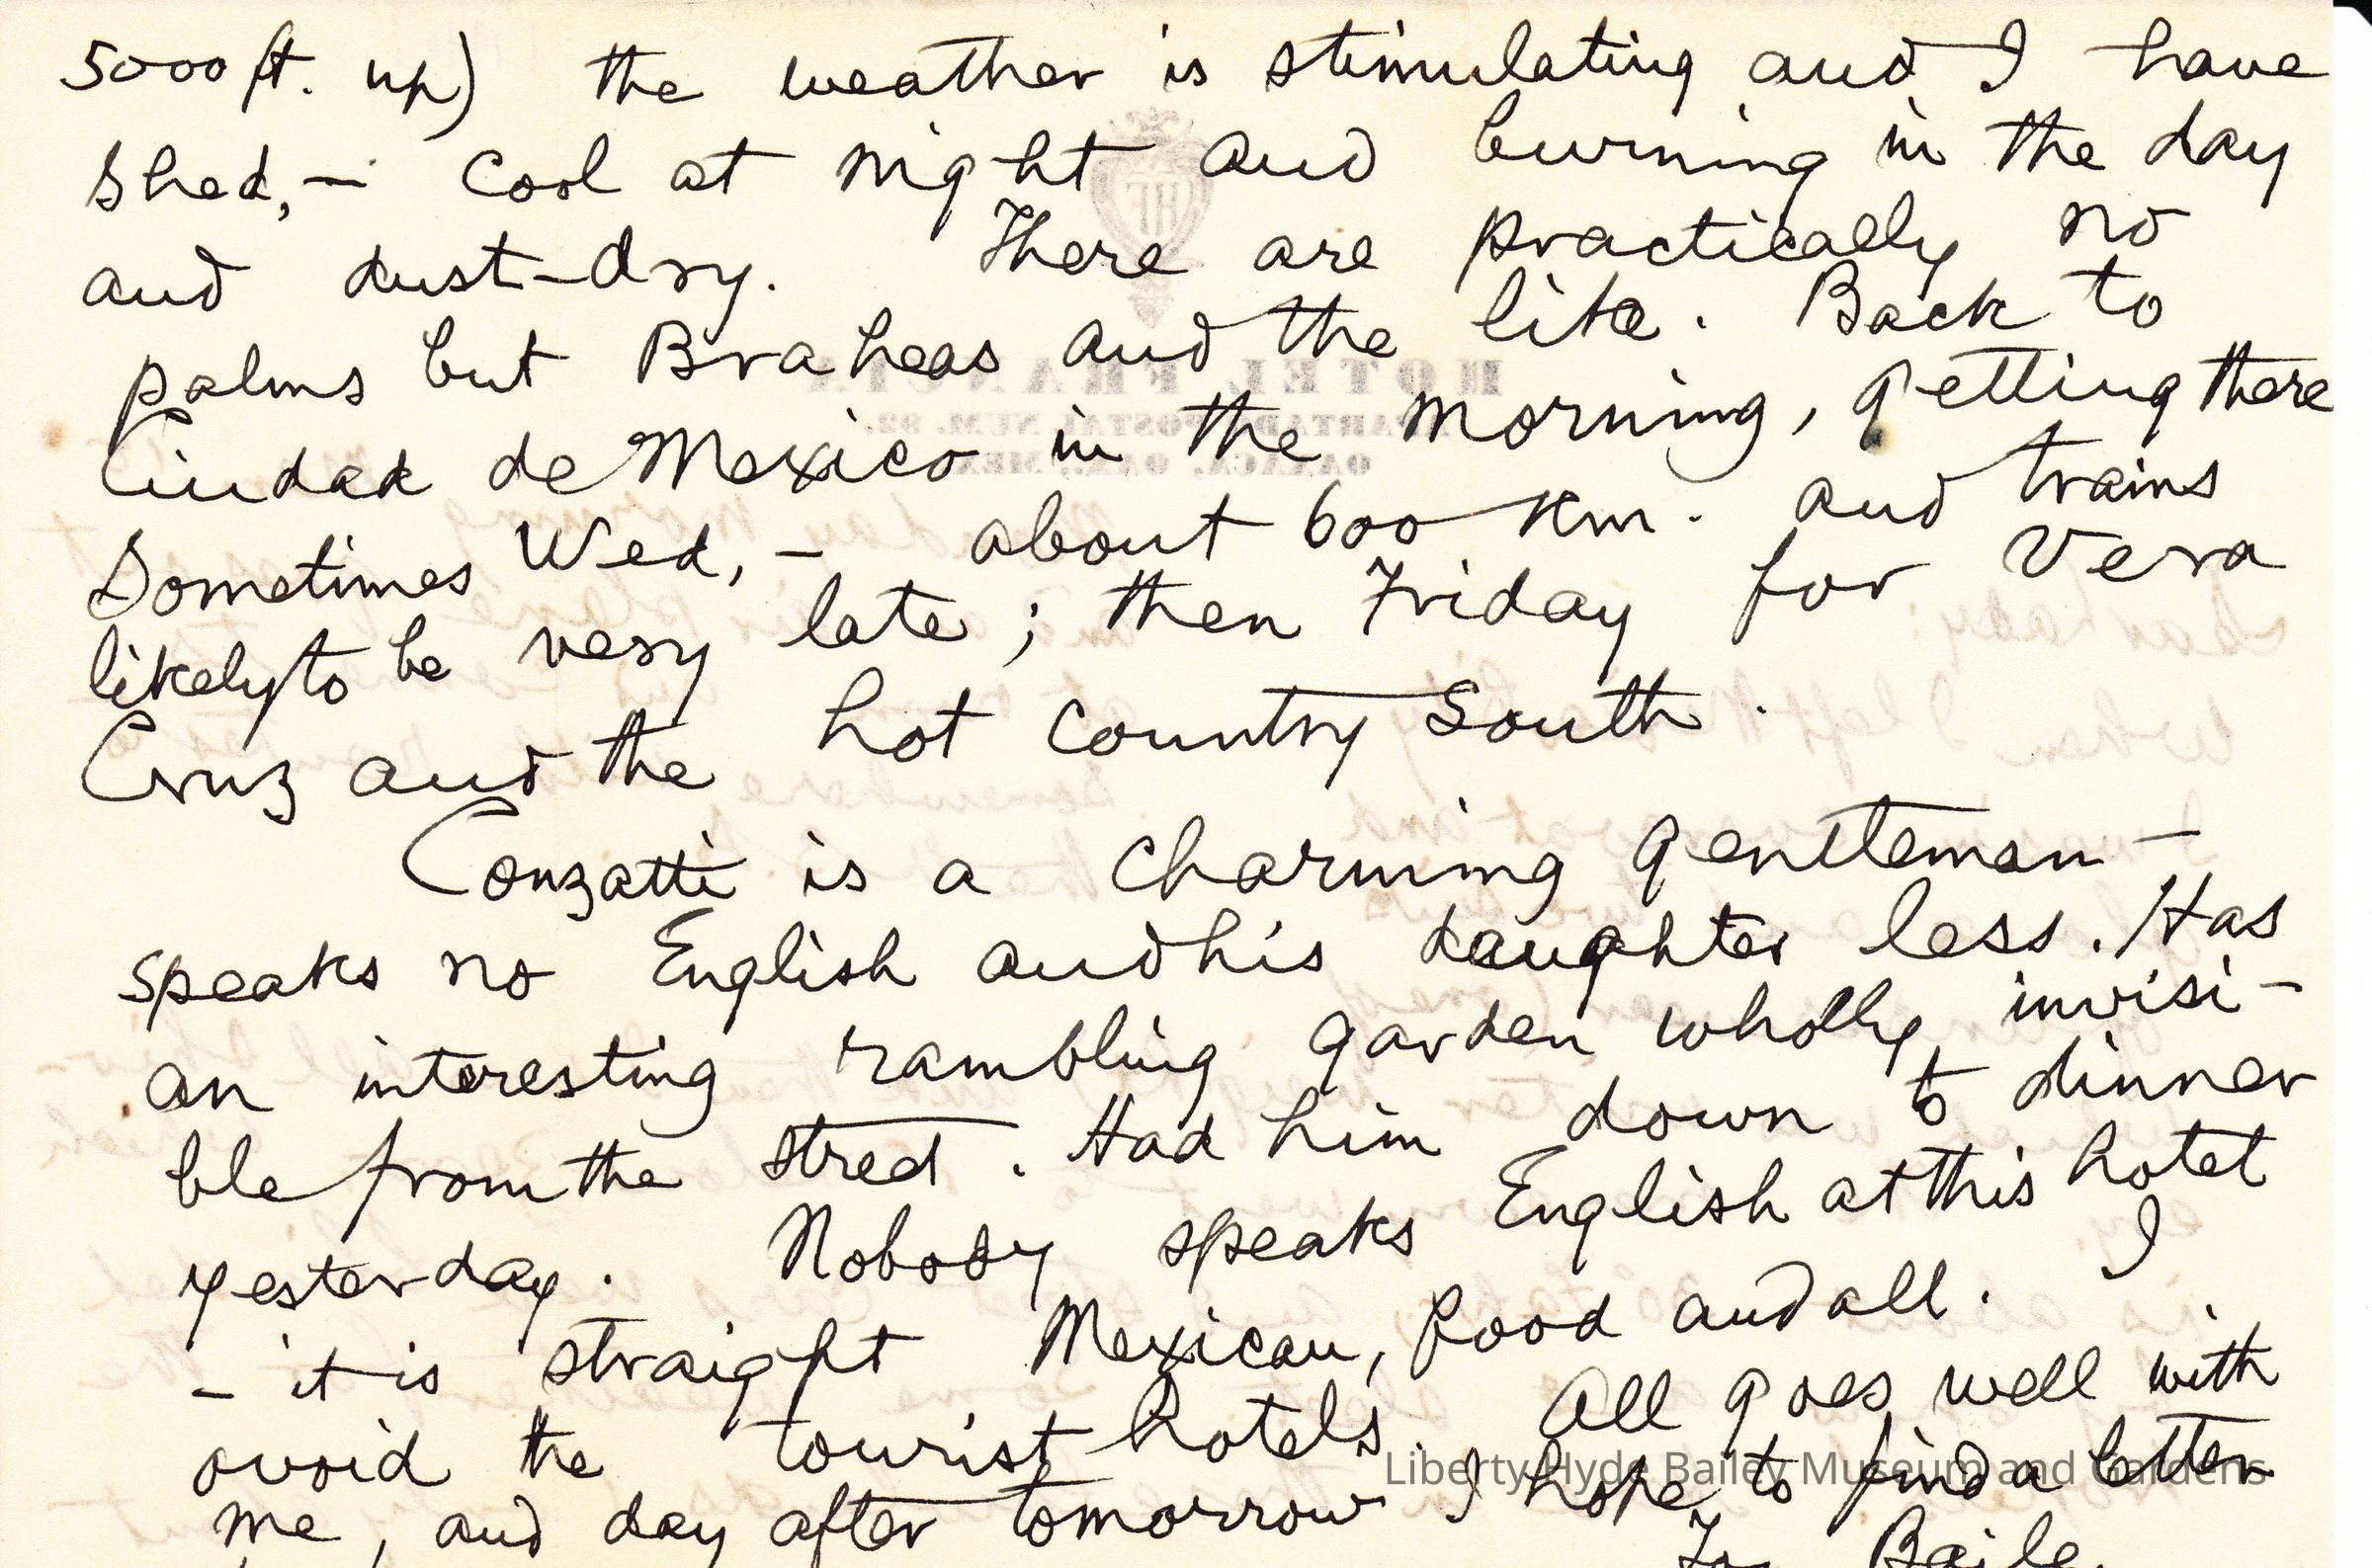 5000 ft. up) the weather is stimulating and I have
shed, - cool at night and burning in the day
and dust-dry. There are practically no
palms but Braheas and the like. Back to
Ciudad de Mexico in the morning, getting there
Sometimes Wed, - about 600 km. and trains
likely to be very late; then Friday for Vera
Cruz and the hot country South.
Conzatti is a charming gentleman -
speaks no English and his daughter less. Has
an interesting rambling garden wholly invisi-
ble from the street. Had him down to dinner
yesterday. Nobody speaks English at this hotel
- it is straight Mexican, food and all. I
avoid the tourist hotels. All goes well with
me, and day after tomorrow I hope to find a letter
HOTEL FRANCIA
APARTADO POSTAL NUM. 92.
OAXACA, OAX., MEX.
Liberty Hyde Bailey Museum and Gardens